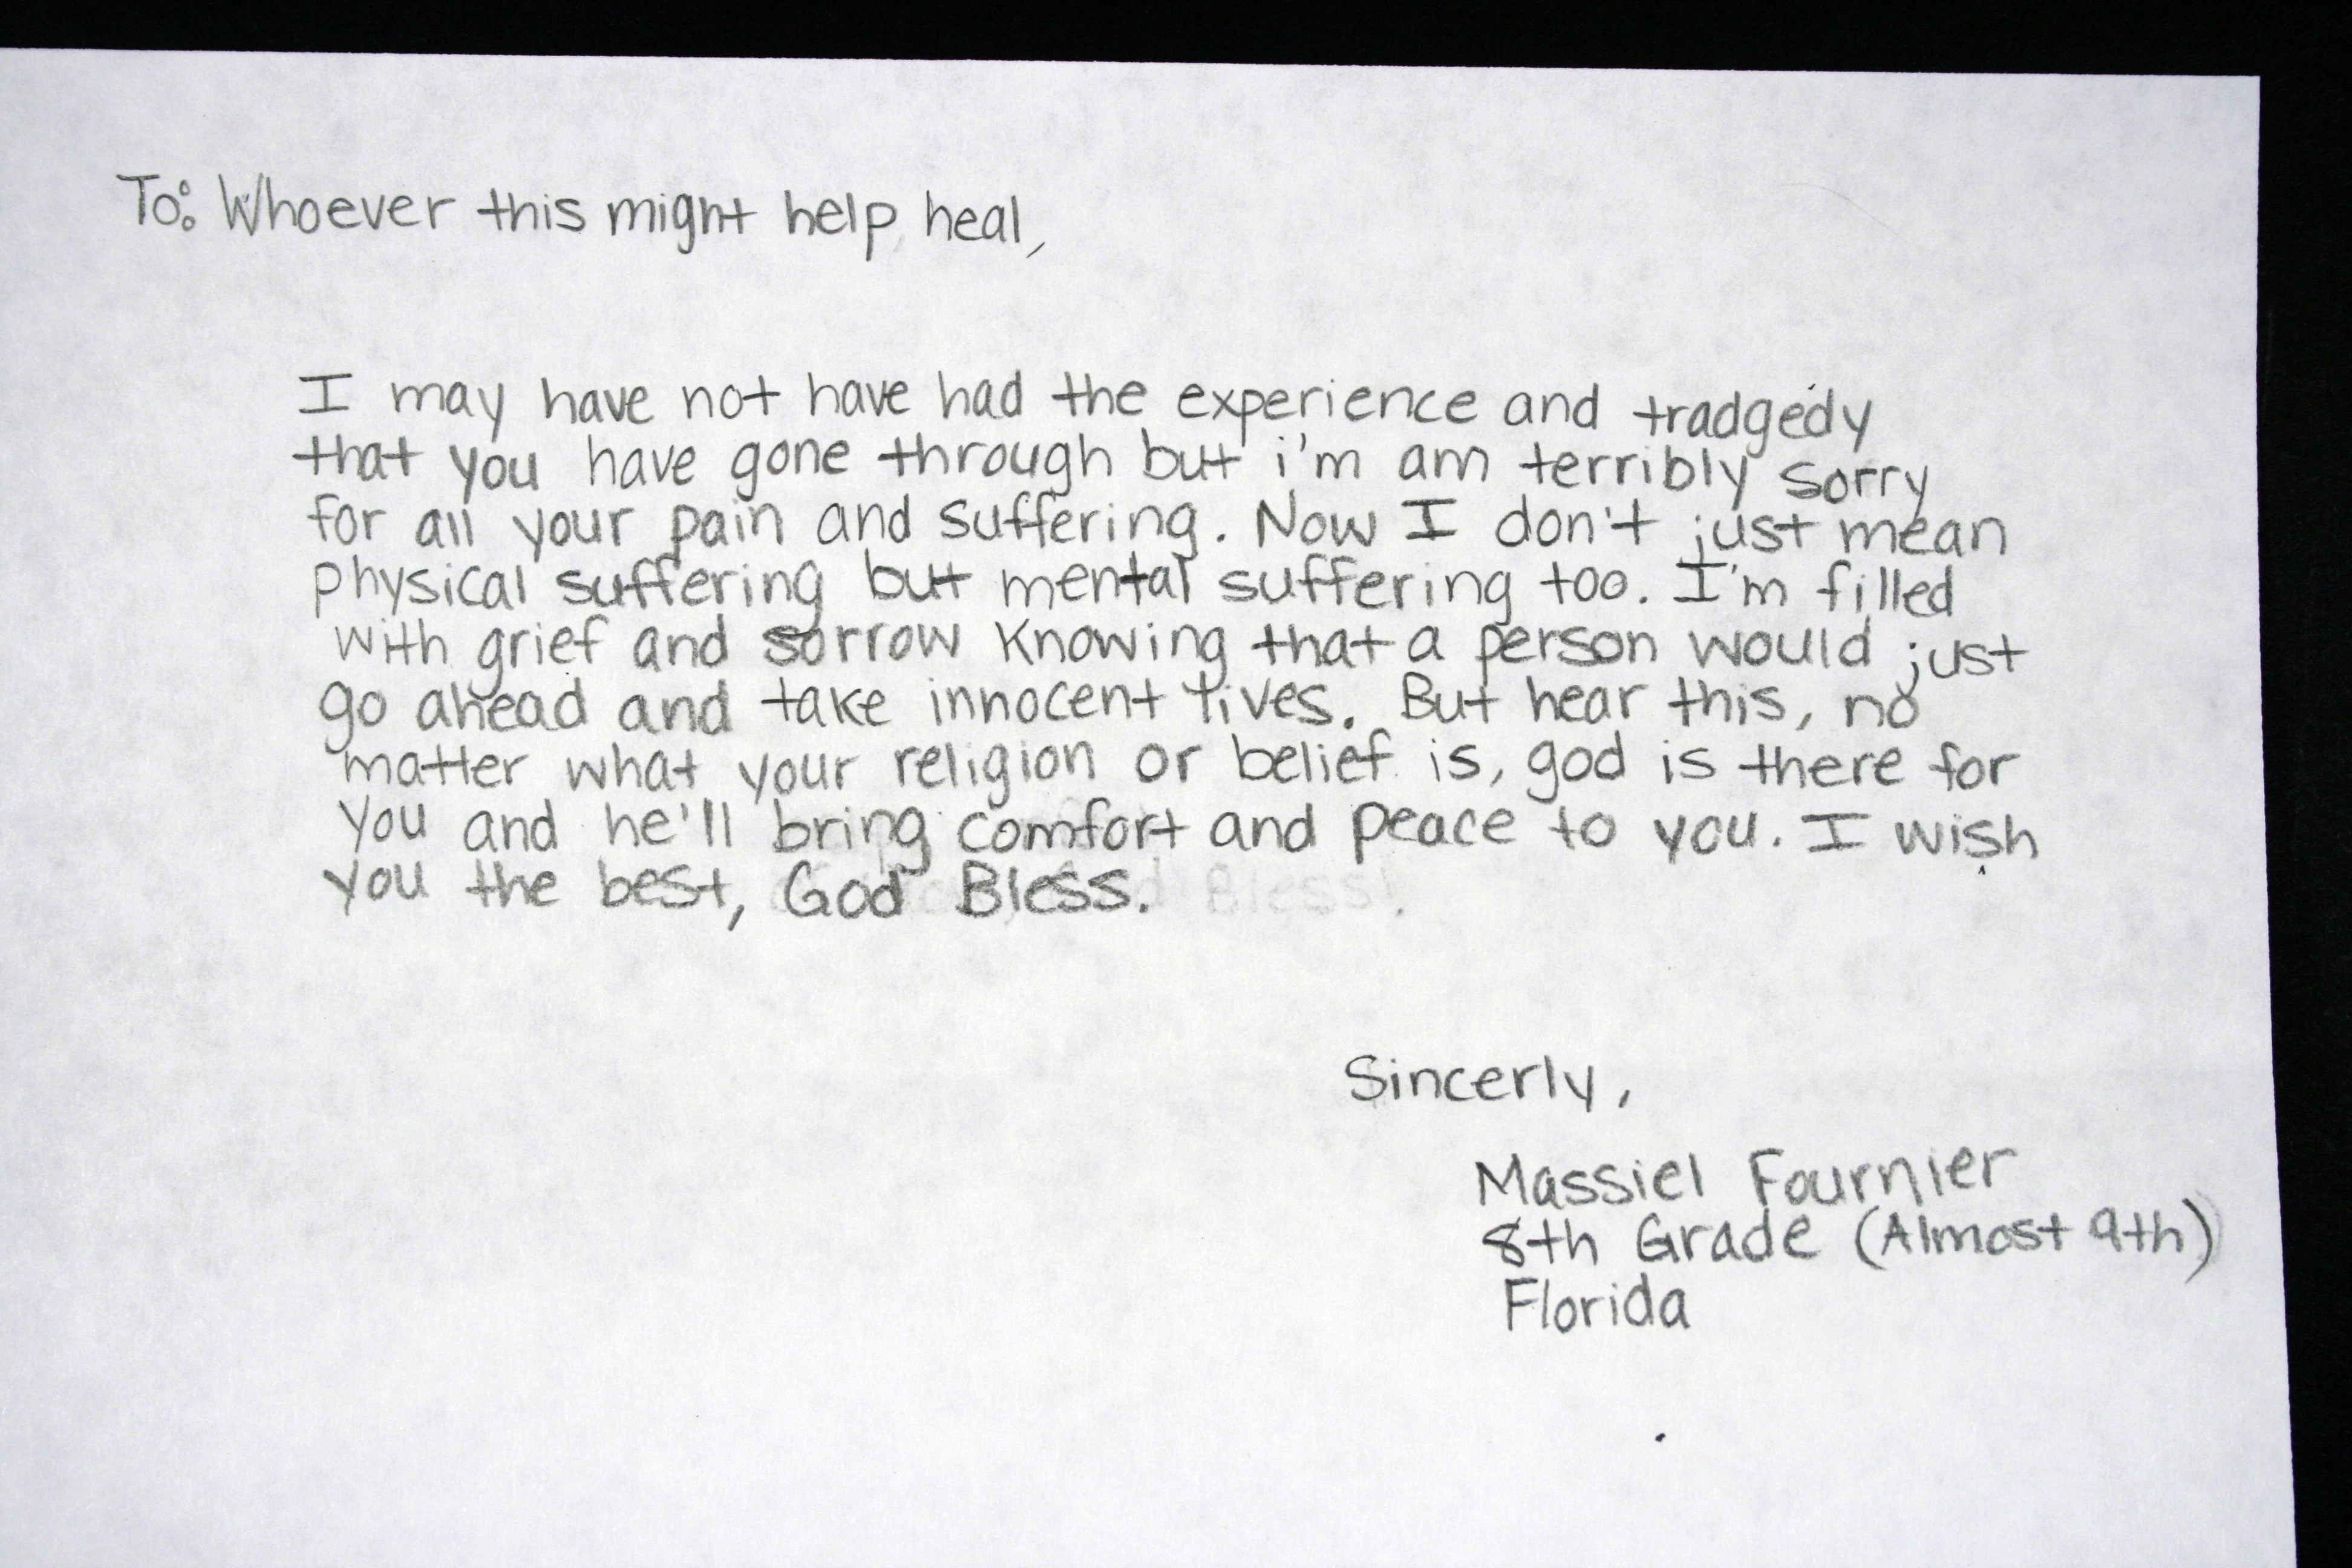 To: Whoever this might help heal,
I may have not have had the experience and tradgedy
that you have gone through but i'm am terribly sorry
for all your pain and suffering. Now I don't just mean
physical suffering but mental suffering too. I'm filled
with grief and sorrow knowing that a person would just
go ahead and take innocent lives. But hear this, no
matter what your religion or belief is, god is there for
you and he'll bring comfort and peace to you. I wish
you the best, God Bless.
Sincerly,
Massiel Fournier
8th Grade (Almost 9th)
Florida